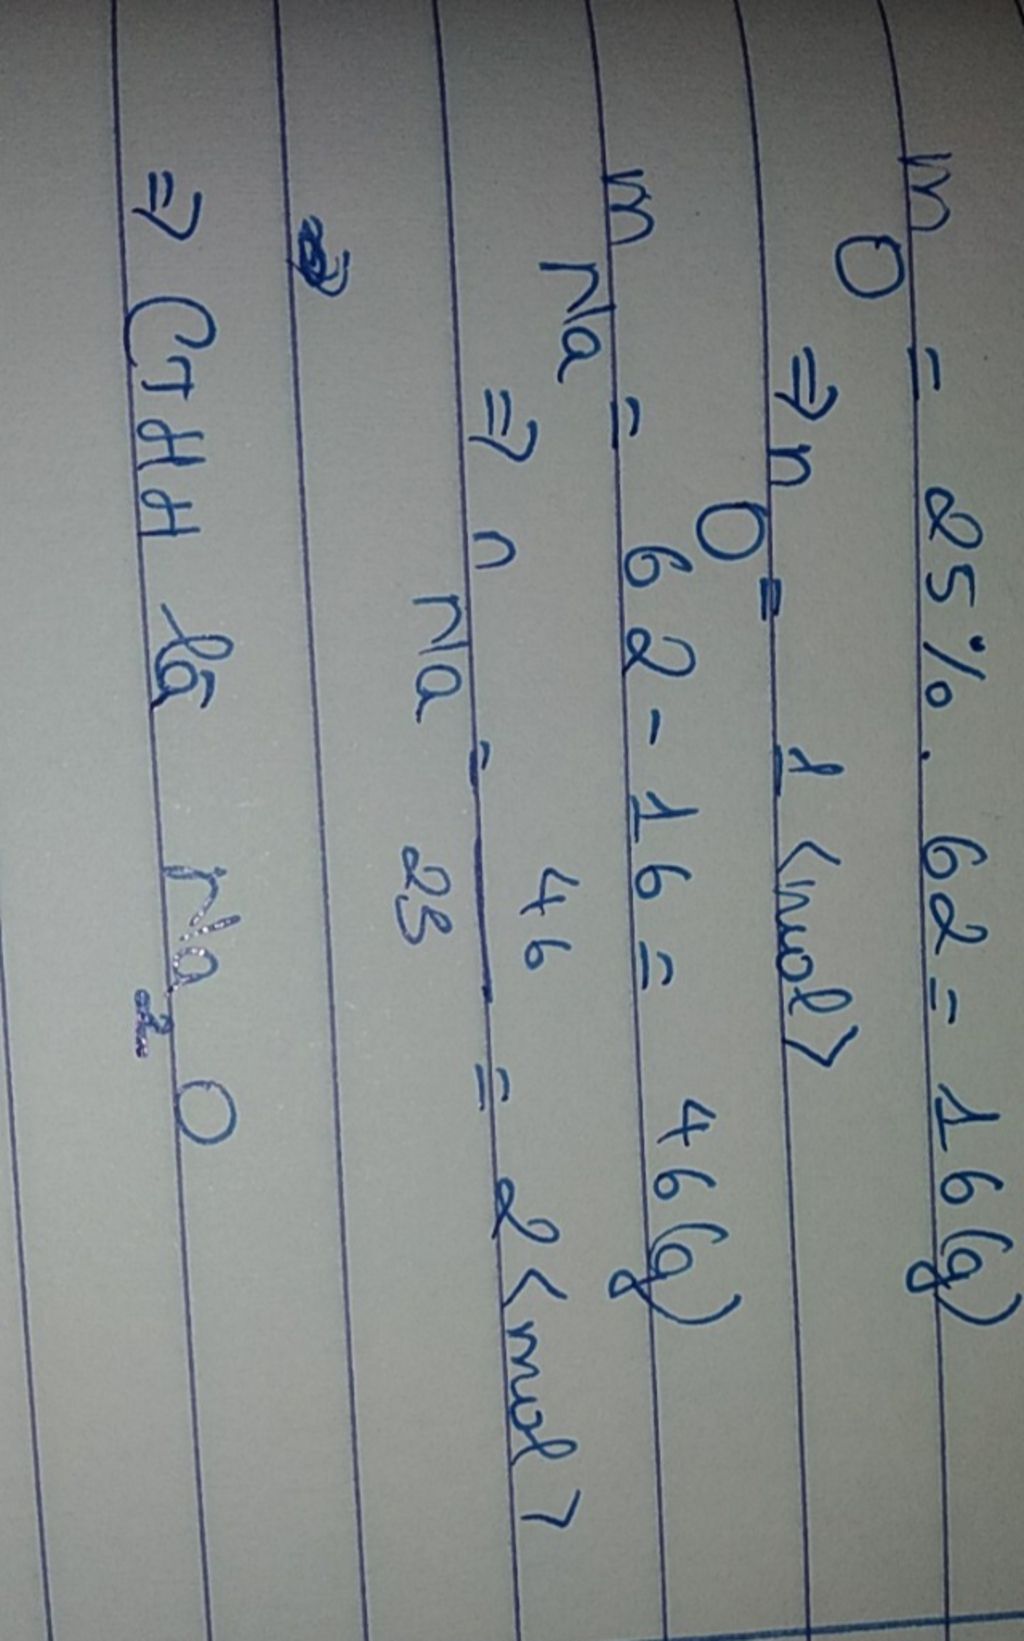 m O = 25%. 62 = 16 (g)
⇒ n O = 1 <mol>
m Na = 62 - 16 = 46 (g)
⇒ n Na = 46/23 = 2 <mol>
⇒ CTHH là Na2O